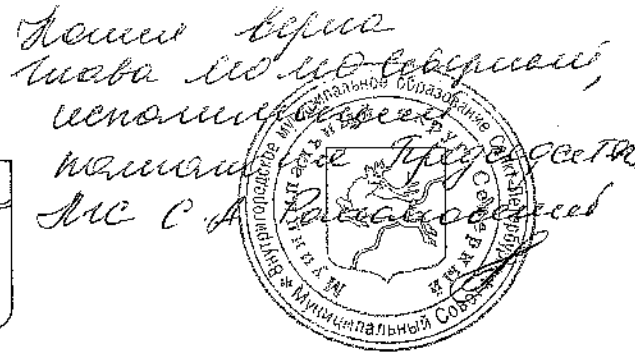 Копия верна
Глава МО МО Северный,
исполняющий
полномочия Председателя
МС С.А.
Внутригородское муниципальное образование Санкт-Петербурга
Муниципальный округ Северный
Муниципальный Совет